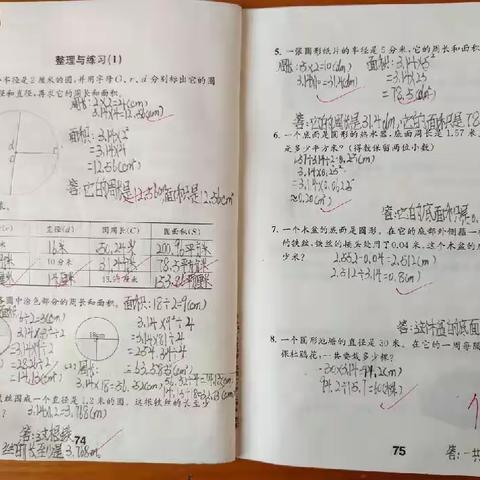 整理与练习(1)
半径是2厘米的圆,并用字母O、r、d分别标出它的圆
径和直径,再求它的周长和面积。
周长:2×2=4(cm)
3.14×4=12.56(cm)
面积:3.14×2²
=3.14×4
=12.56(cm²)
答:它的周长是12.56cm,面积是12.56cm²
直径(d)
圆周长(C)
圆面积(S)
16米
50.24米
200.96平方米
10分米
31.4分米
78.5平方分米
图中涂色部分的周长和面积。
面积:18÷2=9(cm)
3.14×9²÷4
=3.14×81÷4
=254.34÷4
=63.585(cm²)
18cm
3.14×9÷2
=28.26÷2
=14.13(cm²)
铁丝围成一个直径是1.2米的圆,这根铁丝的长至少
3.14×1.2=3.768(m)
答:这根铁
丝的长至少是3.768m
74
5. 一张圆形纸片的半径是5分米,它的周长和面积
周长:5×2=10(dm)
3.14×10=31.4(dm)
面积:3.14×5²
=3.14×25
=78.5(dm²)
答:它的周长是31.4dm,它的面积是78.
6. 一个底面是圆形的热水器,底面周长是1.57米,
是多少平方米?(得数保留两位小数)
1.57÷3.14÷2=0.25(m)
3.14×0.25²
=3.14×0.0625
≈0.20(m²)
答:它的底面积是0.
7. 一个木盆的底面是圆形。在它的底部外侧箍一
的铁丝,铁丝的接头处用了0.04米,这个木盆的
少米?
2.552-0.04=2.512(m)
2.512÷3.14=0.8(m)
答:这个木盆的底面
8. 一个圆形池塘的直径是30米,在它的一周每隔
棵杜鹃花,一共要栽多少棵?
30×3.14=94.2(m)
94.2÷1.57=60(棵)
答:一共
75